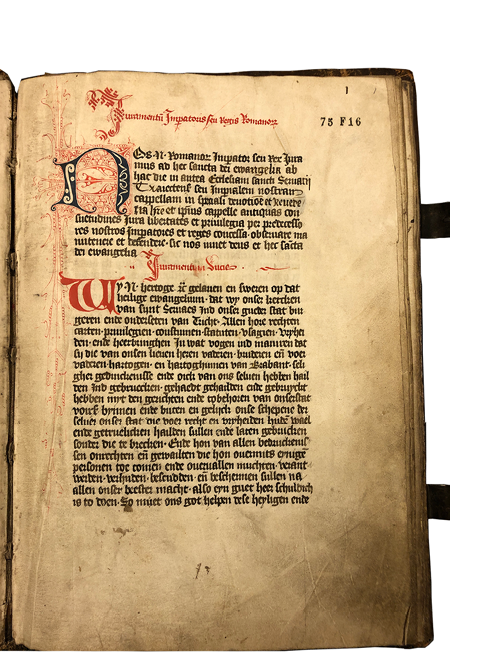 1
75 F 16
Iuramentū Impatoris seu Regis Romanoꝝ
NOS · N · Romanoꝝ Impator seu Rex Iura
mus ad hec sancta dei ewangelia ab
hac die in antea Ecclesiam sancti Seruatij
Traiecteñ seu Impialem nostram
cappellam in spēali deuotiōe et reuere
tia hrē et ipius cappelle antiquas con
suetudines iura libertates et priuilegia per predecesso
res nostros impatores et reges concessa · obseruare ma
nutenere et defendere · sic nos iuuet deus et hec sācta
dei ewangelia
Iuramentum Ducis
WY · N · hertoge ꝛc̄ gelauen en sweren op dat
heilige ewangelium · dat wy onser kercken
van sunt Seruaes Ind onser guder stat bur
geren ende onderseten van Tricht · Allen hore rechten
carten · priuilegien · coustumen · statuten · vsagien · vrihei
den · ende heerbinghen In wat vogen ind manieren dat
sij die van onsen lieuen heren vaderen · bruderen en̄ voer
vaderen · hartogen · en hartoghinnen van Brabant · seli
gher gedinckenisse ende oich van ons seluen hebben hail
den Ind gebruecken · gehaedt gehailden ende gebruyckt
hebben myt den gerichten ende tobehoren van onser stat
vorß bynnen ende buten en gelijck onse schepene der
seluer onser stat die voer recht en vryheiden huden wael
ende getruelicken hailden sullen ende laten gebruicken
sonder die te brecken · Ende hon van allen bedruckenis
sen onrechten en̄ gewailden die hon ouermits eynigē
personen toe comen ende oueruallen muchten · verant
werden · verhuden · beschudden · en̄ bescheimen sullen na
allen onser bester macht · also eyn guet heer schuldich
is to doen · So muet ons got helpen dese heyligen ende